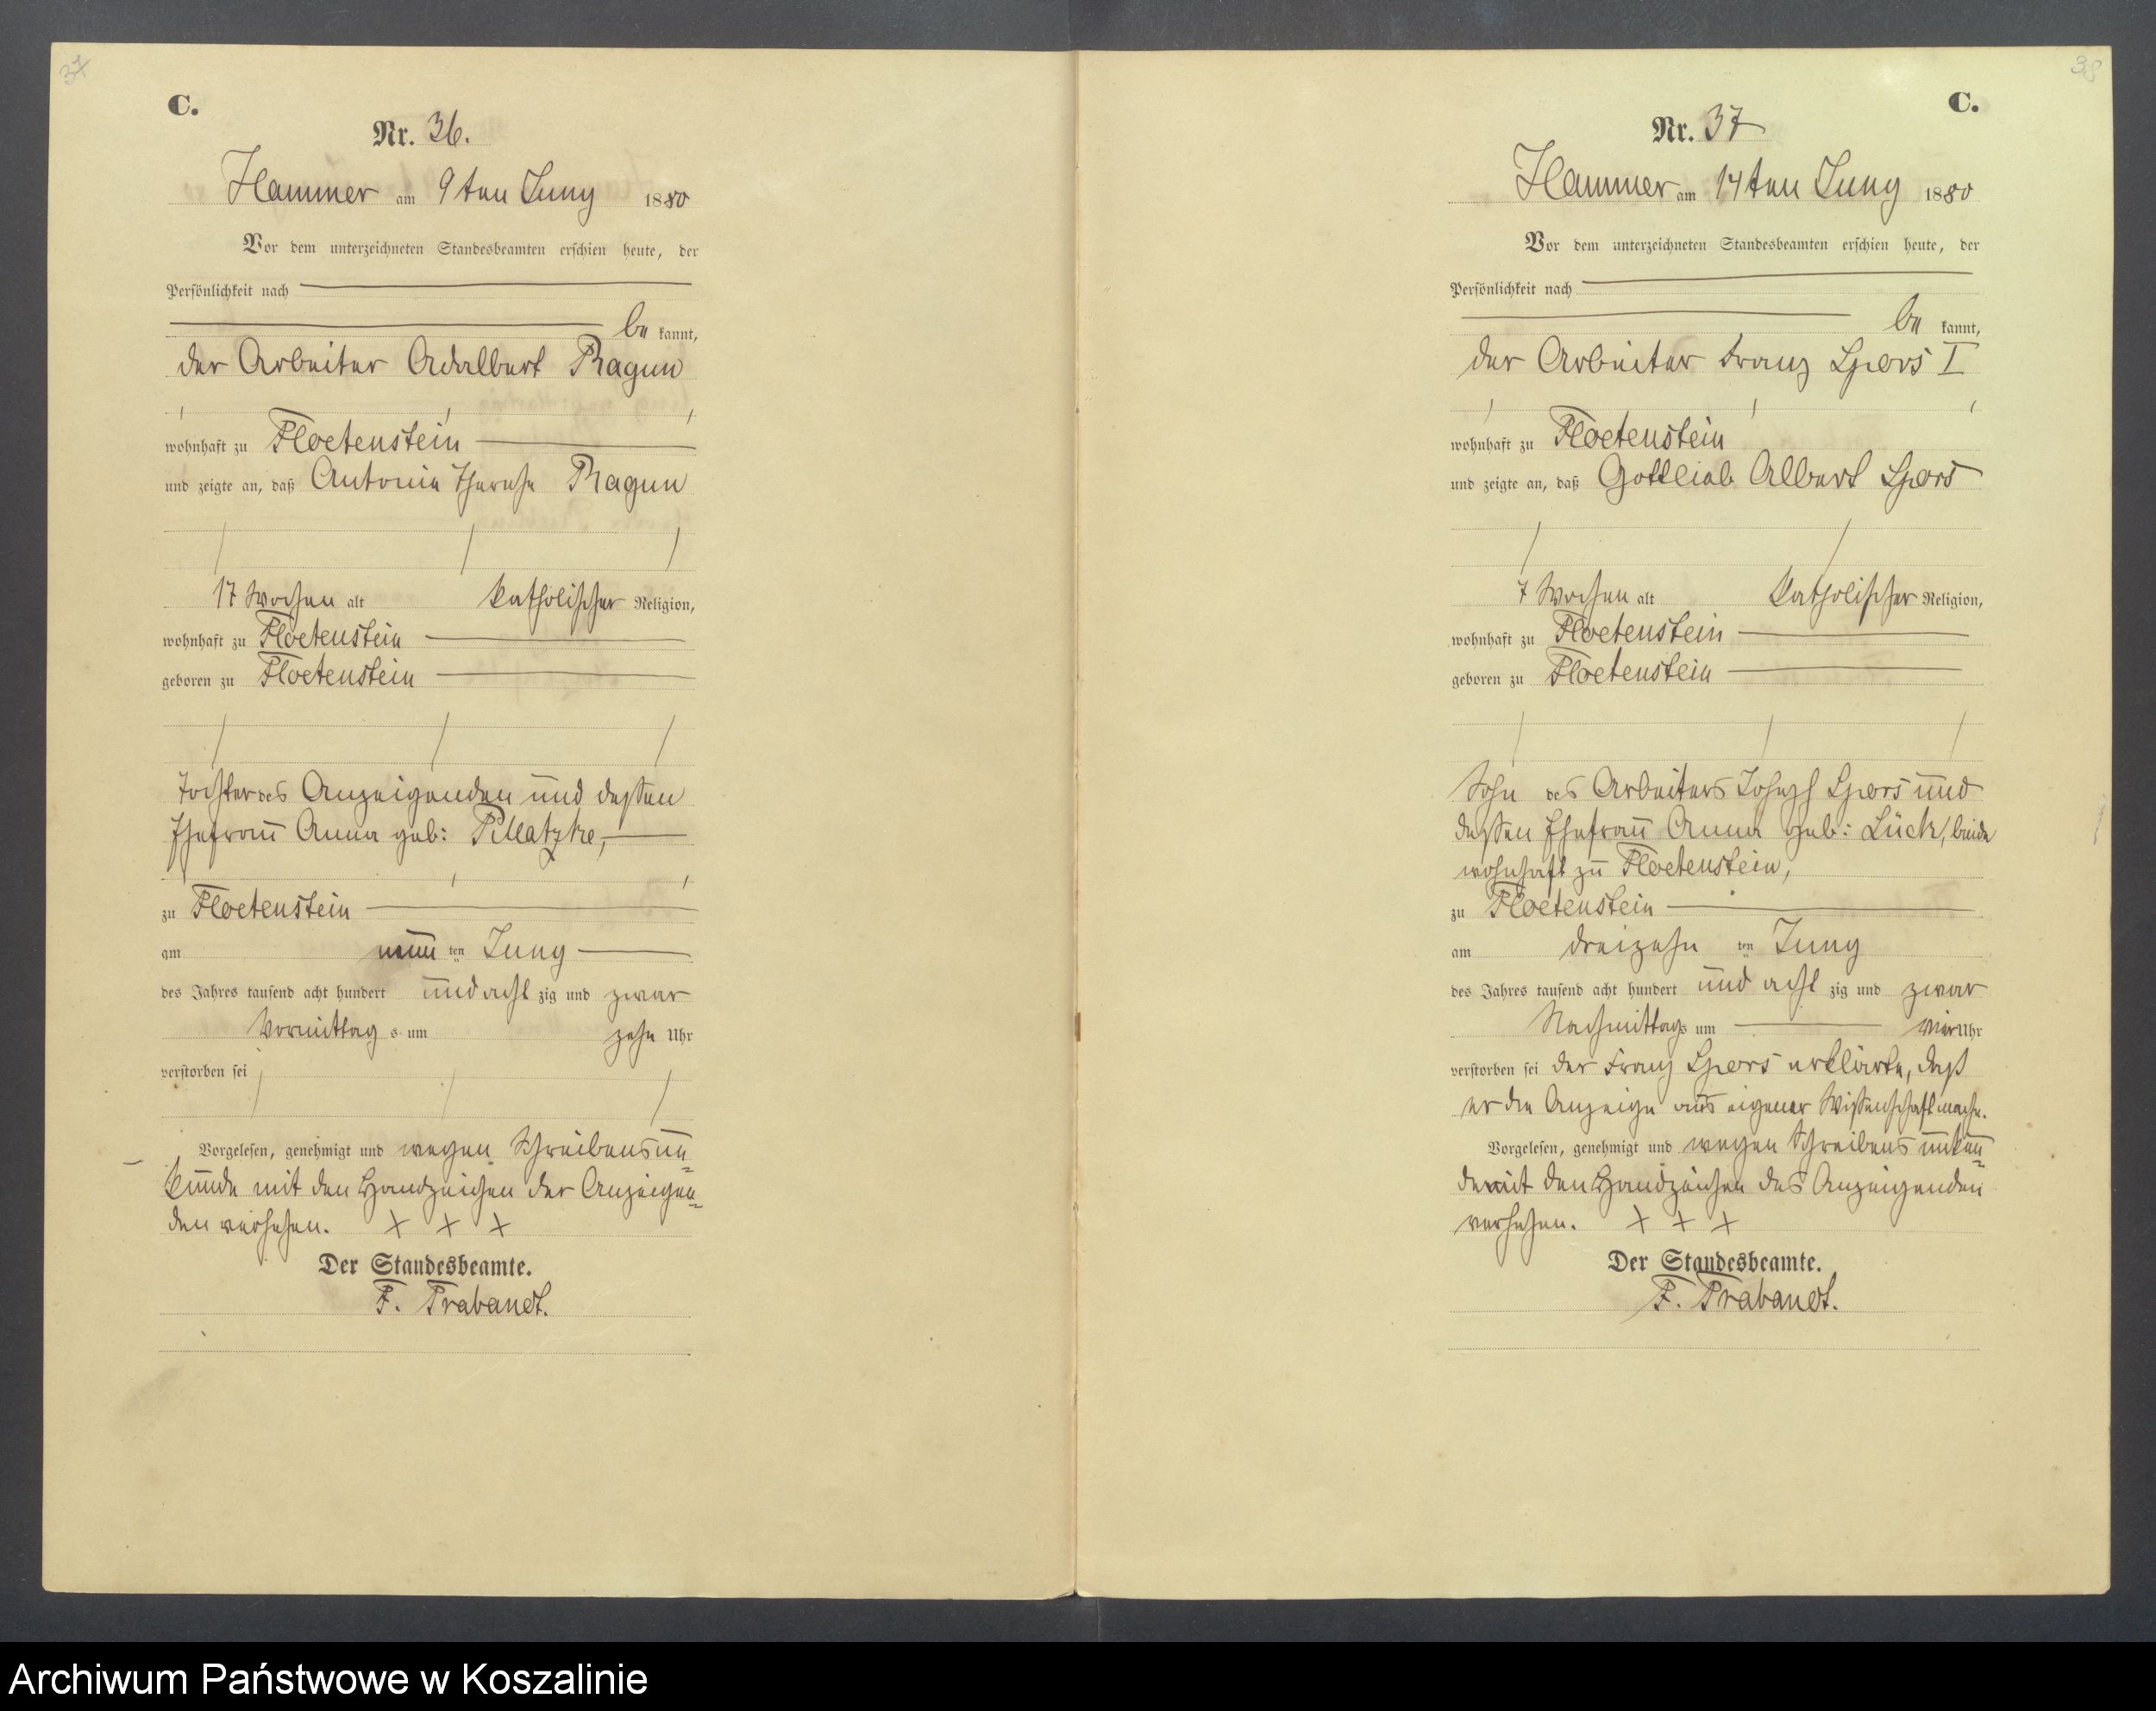 37
C.
Nr. 36.
Hammer am 9ten Juny 1880
Vor dem unterzeichneten Standesbeamten erschien heute, der
Persönlichkeit nach
be kannt,
der Arbeiter Adalbert Ragun
wohnhaft zu Floetenstein
und zeigte an, daß Antonie Therese Ragun
17 Wochen alt katholischer Religion,
wohnhaft zu Floetenstein
geboren zu Floetenstein
Tochter des Anzeigenden und deßen
Ehefrau Anna geb: Pillatzke,
zu Floetenstein
am neun ten Juny
des Jahres tausend acht hundert und acht zig und zwar
Vormittag s um zehn Uhr
verstorben sei
Vorgelesen, genehmigt und wegen Schreibensun=
kunde mit den Handzeichen der Anzeigen=
den versehen. + + +
Der Standesbeamte.
F. Trabandt.
38
C.
Nr. 37
Hammer am 14ten Juny 1880
Vor dem unterzeichneten Standesbeamten erschien heute, der
Persönlichkeit nach
be kannt,
der Arbeiter Franz Spors I
wohnhaft zu Floetenstein
und zeigte an, daß Gottlieb Albert Spors
7 Wochen alt katholischer Religion,
wohnhaft zu Floetenstein
geboren zu Floetenstein
Sohn des Arbeiters Joseph Spors und
deßen Ehefrau Anna geb: Lück, beide
wohnhaft zu Floetenstein,
zu Floetenstein
am dreizehn ten Juny
des Jahres tausend acht hundert und acht zig und zwar
Nachmittags um vier Uhr
verstorben sei der Franz Spors erklärte, daß
er die Anzeige aus eigener Wißenschaft mache.
Vorgelesen, genehmigt und wegen Schreibens unkun=
de mit den Handzeichen des Anzeigenden
versehen. + + +
Der Standesbeamte.
F. Trabandt.
Archiwum Państwowe w Koszalinie